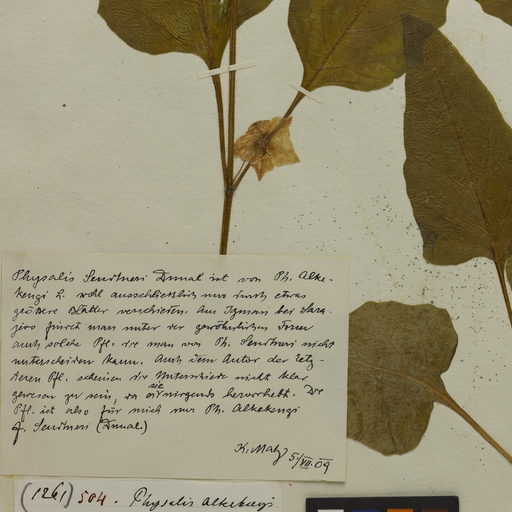 Physalis Sendtneri Dunal ist von Ph. Alke-
kengi L. wohl ausschliesslich nur durch etwas
grössere Blätter verschieden. Am Igman bei Sara-
jevo findet man unter der gewöhnlichen Form
auch solche Pfl. die man von Ph. Sendtneri nicht
unterscheiden kann. Auch dem Autor der letz-
teren Pfl. scheinen die Unterschiede nicht klar
gewesen zu sein, da sie nirgends hervorhebt. Die
Pfl. ist also für mich nur Ph. Alkekengi
f. Sendtneri (Dunal)
K. Malý 5/VII.09
(1261) 504. Physalis alkekengi